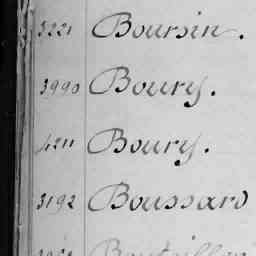 3221 Boursin.
3990 Boury.
4211 Boury.
3192 Boussard